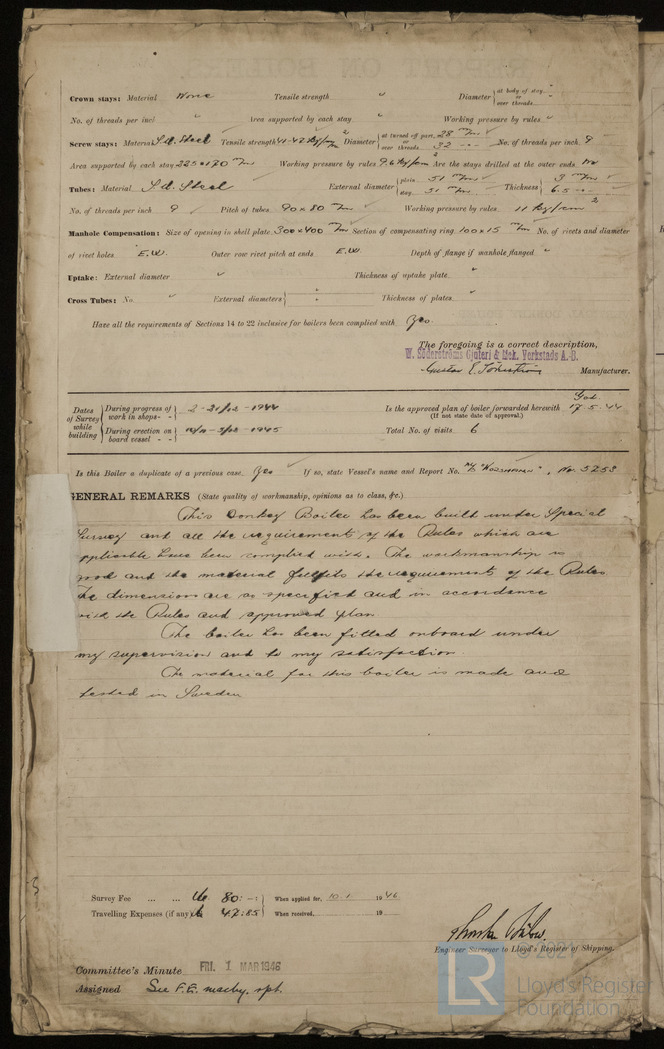 Crown stays: Material None Tensile strength " Diameter { at body of stay " or over threads
No. of threads per inch " Area supported by each stay " Working pressure by rules "
Screw stays: Material S.M. Steel Tensile strength 41-47 kg/mm² Diameter { at turned off part 28 m/m or over threads 32 -"- No. of threads per inch 9
Area supported by each stay 225 x 170 m/m Working pressure by rules 9.6 kg/cm² Are the stays drilled at the outer ends No
Tubes: Material S.M. Steel External diameter { plain 51 m/m stay 51 m/m Thickness { 3 m/m 6.5 -"-
No. of threads per inch 9 Pitch of tubes 90 x 80 m/m Working pressure by rules 11 kg/cm²
Manhole Compensation: Size of opening in shell plate 300 x 400 m/m Section of compensating ring 100 x 15 m/m No. of rivets and diameter
of rivet holes E.W. Outer row rivet pitch at ends E.W. Depth of flange if manhole flanged "
Uptake: External diameter " Thickness of uptake plate "
Cross Tubes: No. " External diameters { " Thickness of plates "
Have all the requirements of Sections 14 to 22 inclusive for boilers been complied with Yes
The foregoing is a correct description,
W. Söderströms Gjuteri & Mek. Verkstads A.-B.
Manufacturer.
Dates of Survey while building { During progress of work in shops - - 2-21/12-1944
During erection on board vessel - - -1945
Is the approved plan of boiler forwarded herewith 17-5-44
(If not state date of approval.)
Total No. of visits 6
Is this Boiler a duplicate of a previous case Yes If so, state Vessel's name and Report No. No. 5253
GENERAL REMARKS (State quality of workmanship, opinions as to class, &c.)
This Donkey Boiler has been built under Special
Survey and all the requirements of the Rules which are
applicable have been complied with. The workmanship is
good and the material fulfils the requirements of the Rules.
The dimensions are as specified and in accordance
with the Rules and approved plan.
The boiler has been fitted onboard under
my supervision and to my satisfaction.
The material for this boiler is made and
tested in Sweden
Survey Fee ... ... Kr 80:-: When applied for, 10.1 19 46
Travelling Expenses (if any) 47:85 When received, 19
Engineer Surveyor to Lloyd's Register of Shipping.
Committee's Minute FRI. 1 MAR 1946
Assigned See F.E. machy. rpt.
© 2021
LR
Lloyd's Register
Foundation